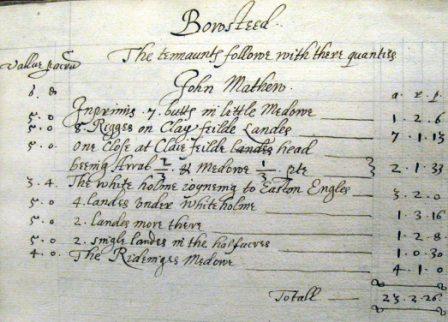 Bowsteed.
The tennaunts followe with there quanties
Value p acre
John Mathew.
s. d a. r. p.
5. 0 Inprimis 7. butts in little Medowe 1. 2. 6
5. 0 8. Rigges on Clay feilde Landes 7. 1. 13
5. 0 one Close at Claie feilde landes head
being Arral 2/3 & Medowe 1/3 pte } 2. 1. 33
3. 4. The white holme ioyneing to Easton Engles 3. 2. 0
5. 0 4. landes under whiteholme 1. 3. 16
5. 0 2. landes more there 1. 2. 8
5. 0 2. single landes in the halfacres 1. 0. 30
4. 0. The Medowe 4. 1. 0
Totall 23. 2. 26